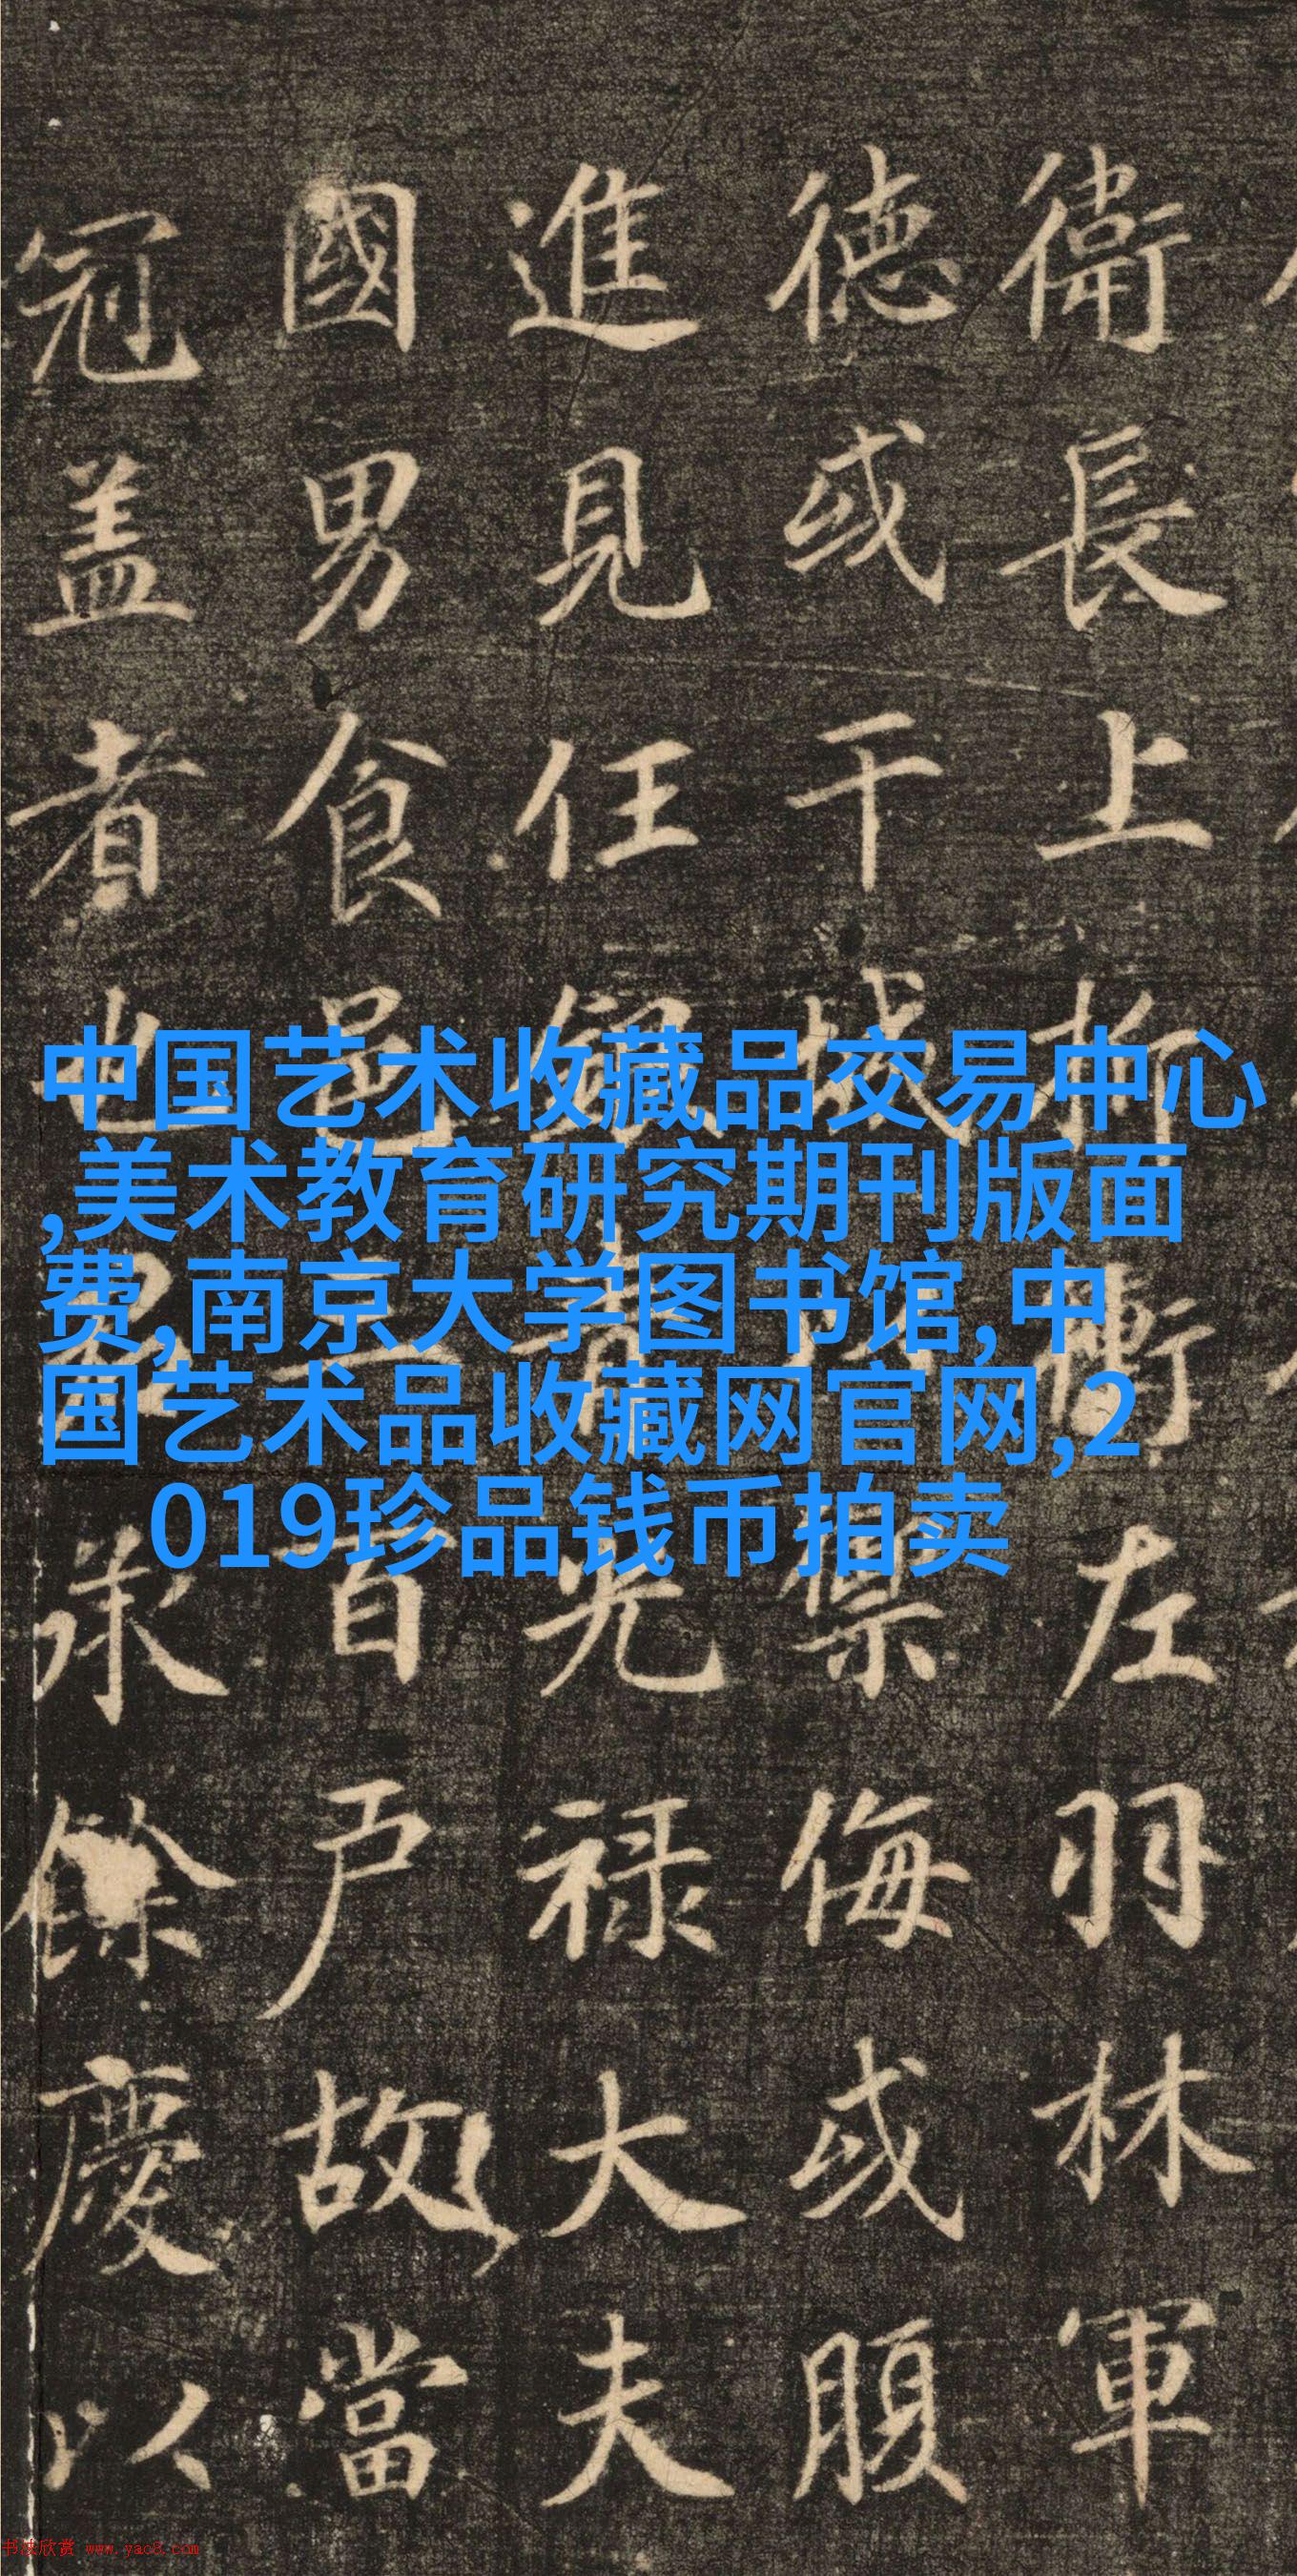 衛長上折衝左羽林軍
德或干城禦侮或腹
進見任銀青光禄大夫
國男食邑三百戶故當
冠盖者也承餘慶以
中国艺术收藏品交易中心
,美术教育研究期刊版面
费,南京大学图书馆,中
国艺术品收藏网官网,2
019珍品钱币拍卖
书法欣赏 www.yac8.com